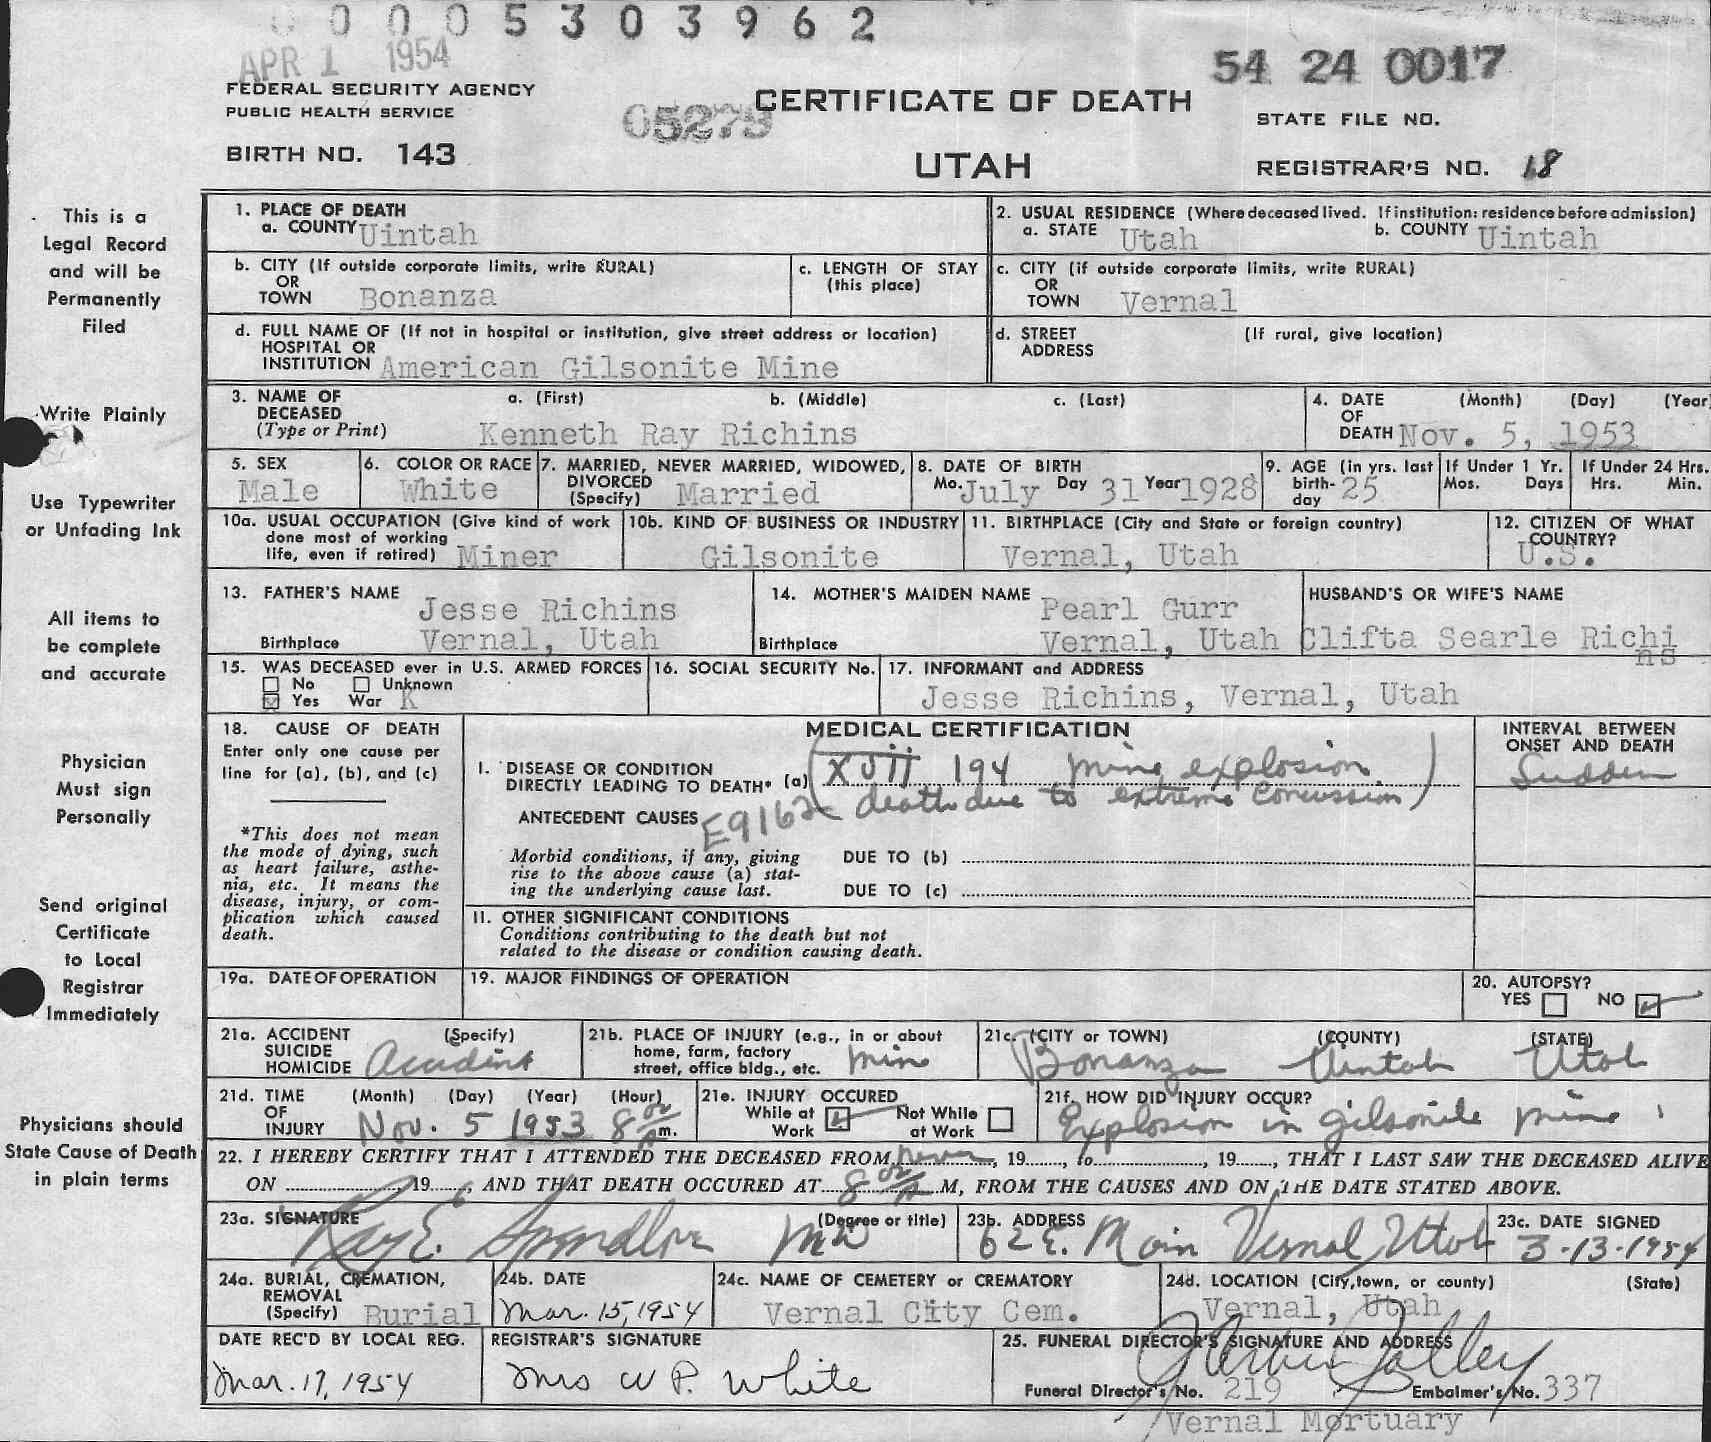 0 0 0 0 5 3 0 3 9 6 2
APR 1 1954
54 24 0017
FEDERAL SECURITY AGENCY
PUBLIC HEALTH SERVICE
65279
CERTIFICATE OF DEATH
STATE FILE NO.
BIRTH NO. 143
UTAH
REGISTRAR'S NO. 18
This is a
Legal Record
and will be
Permanently
Filed
Write Plainly
Use Typewriter
or Unfading Ink
All items to
be complete
and accurate
Physician
Must sign
Personally
Send original
Certificate
to Local
Registrar
Immediately
Physicians should
State Cause of Death
in plain terms
1. PLACE OF DEATH
a. COUNTY Uintah
2. USUAL RESIDENCE (Where deceased lived. If institution: residence before admission)
a. STATE Utah b. COUNTY Uintah
b. CITY (If outside corporate limits, write RURAL)
OR
TOWN Bonanza
c. LENGTH OF STAY
(this place)
c. CITY (if outside corporate limits, write RURAL)
OR
TOWN Vernal
d. FULL NAME OF (If not in hospital or institution, give street address or location)
HOSPITAL OR
INSTITUTION American Gilsonite Mine
d. STREET (If rural, give location)
ADDRESS
3. NAME OF a. (First) b. (Middle) c. (Last)
DECEASED
(Type or Print) Kenneth Ray Richins
4. DATE (Month) (Day) (Year
OF
DEATH Nov. 5, 1953
5. SEX
Male
6. COLOR OR RACE
White
7. MARRIED, NEVER MARRIED, WIDOWED,
DIVORCED
(Specify) Married
8. DATE OF BIRTH
Mo. July Day 31 Year 1928
9. AGE (in yrs. last
birth-
day 25
If Under 1 Yr.
Mos. Days
If Under 24 Hrs.
Hrs. Min.
10a. USUAL OCCUPATION (Give kind of work
done most of working
life, even if retired) Miner
10b. KIND OF BUSINESS OR INDUSTRY
Gilsonite
11. BIRTHPLACE (City and State or foreign country)
Vernal, Utah
12. CITIZEN OF WHAT
COUNTRY?
U.S.
13. FATHER'S NAME Jesse Richins
Birthplace Vernal, Utah
14. MOTHER'S MAIDEN NAME Pearl Gurr
Birthplace Vernal, Utah
HUSBAND'S OR WIFE'S NAME
Clifta Searle Richi
ns
15. WAS DECEASED ever in U.S. ARMED FORCES
No Unknown
Yes War K
16. SOCIAL SECURITY No.
17. INFORMANT and ADDRESS
Jesse Richins, Vernal, Utah
18. CAUSE OF DEATH
Enter only one cause per
line for (a), (b), and (c)
*This does not mean
the mode of dying, such
as heart failure, asthe-
nia, etc. It means the
disease, injury, or com-
plication which caused
death.
MEDICAL CERTIFICATION
I. DISEASE OR CONDITION
DIRECTLY LEADING TO DEATH* (a) (XVII 194 mine explosion)
death due to extreme concussion)
ANTECEDENT CAUSES E9162
Morbid conditions, if any, giving
rise to the above cause (a) stat-
ing the underlying cause last.
DUE TO (b)
DUE TO (c)
II. OTHER SIGNIFICANT CONDITIONS
Conditions contributing to the death but not
related to the disease or condition causing death.
INTERVAL BETWEEN
ONSET AND DEATH
Sudden
19a. DATE OF OPERATION
19. MAJOR FINDINGS OF OPERATION
20. AUTOPSY?
YES NO
21a. ACCIDENT (Specify)
SUICIDE
HOMICIDE Accident
21b. PLACE OF INJURY (e.g., in or about
home, farm, factory
street, office bldg., etc. mine
21c. (CITY or TOWN) (COUNTY) (STATE)
Bonanza Uintah Utah
21d. TIME (Month) (Day) (Year) (Hour)
OF
INJURY Nov. 5 1953 8 00 A m.
21e. INJURY OCCURED
While at Work Not While at Work
21f. HOW DID INJURY OCCUR?
Explosion in gilsonite mine
22. I HEREBY CERTIFY THAT I ATTENDED THE DECEASED FROM never, 19......, to............, 19......, THAT I LAST SAW THE DECEASED ALIVE
ON ............, 19......, AND THAT DEATH OCCURED AT 8 00 A M, FROM THE CAUSES AND ON THE DATE STATED ABOVE.
23a. SIGNATURE (Degree or title)
Ray E. Spendlove MD
23b. ADDRESS
62 E. Main Vernal Utah
23c. DATE SIGNED
3-13-1954
24a. BURIAL, CREMATION,
REMOVAL
(Specify) Burial
24b. DATE
Mar. 15, 1954
24c. NAME OF CEMETERY or CREMATORY
Vernal City Cem.
24d. LOCATION (City, town, or county) (State)
Vernal, Utah
DATE REC'D BY LOCAL REG.
Mar. 17, 1954
REGISTRAR'S SIGNATURE
Mrs W P. White
25. FUNERAL DIRECTOR'S SIGNATURE AND ADDRESS
Funeral Director's No. 219 Embalmer's No. 337
Vernal Mortuary